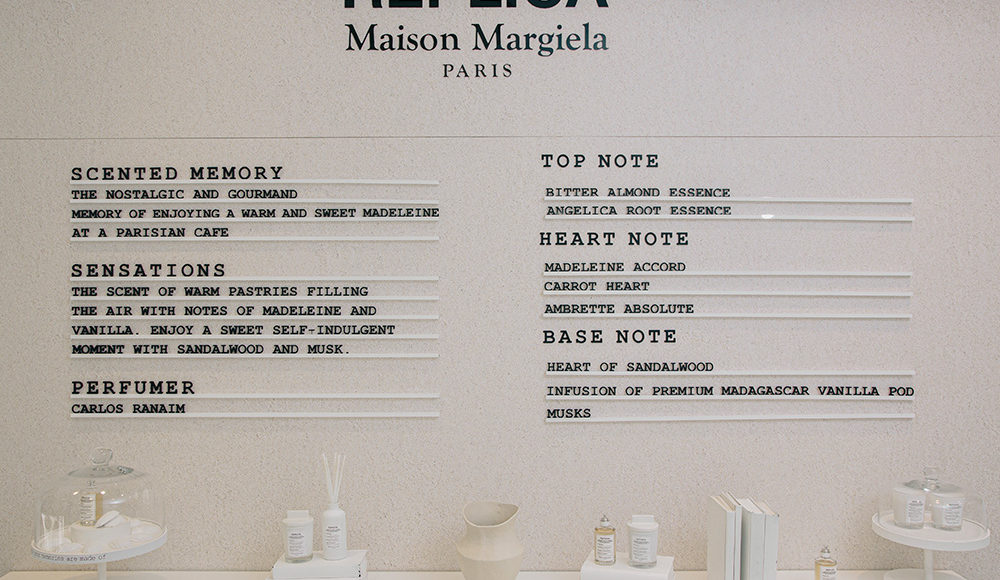 REPLICA
Maison Margiela
PARIS
SCENTED MEMORY
THE NOSTALGIC AND GOURMAND
MEMORY OF ENJOYING A WARM AND SWEET MADELEINE
AT A PARISIAN CAFE
SENSATIONS
THE SCENT OF WARM PASTRIES FILLING
THE AIR WITH NOTES OF MADELEINE AND
VANILLA. ENJOY A SWEET SELF-INDULGENT
MOMENT WITH SANDALWOOD AND MUSK.
PERFUMER
CARLOS RANAIM
TOP NOTE
BITTER ALMOND ESSENCE
ANGELICA ROOT ESSENCE
HEART NOTE
MADELEINE ACCORD
CARROT HEART
AMBRETTE ABSOLUTE
BASE NOTE
HEART OF SANDALWOOD
INFUSION OF PREMIUM MADAGASCAR VANILLA POD
MUSKS
memories are made of